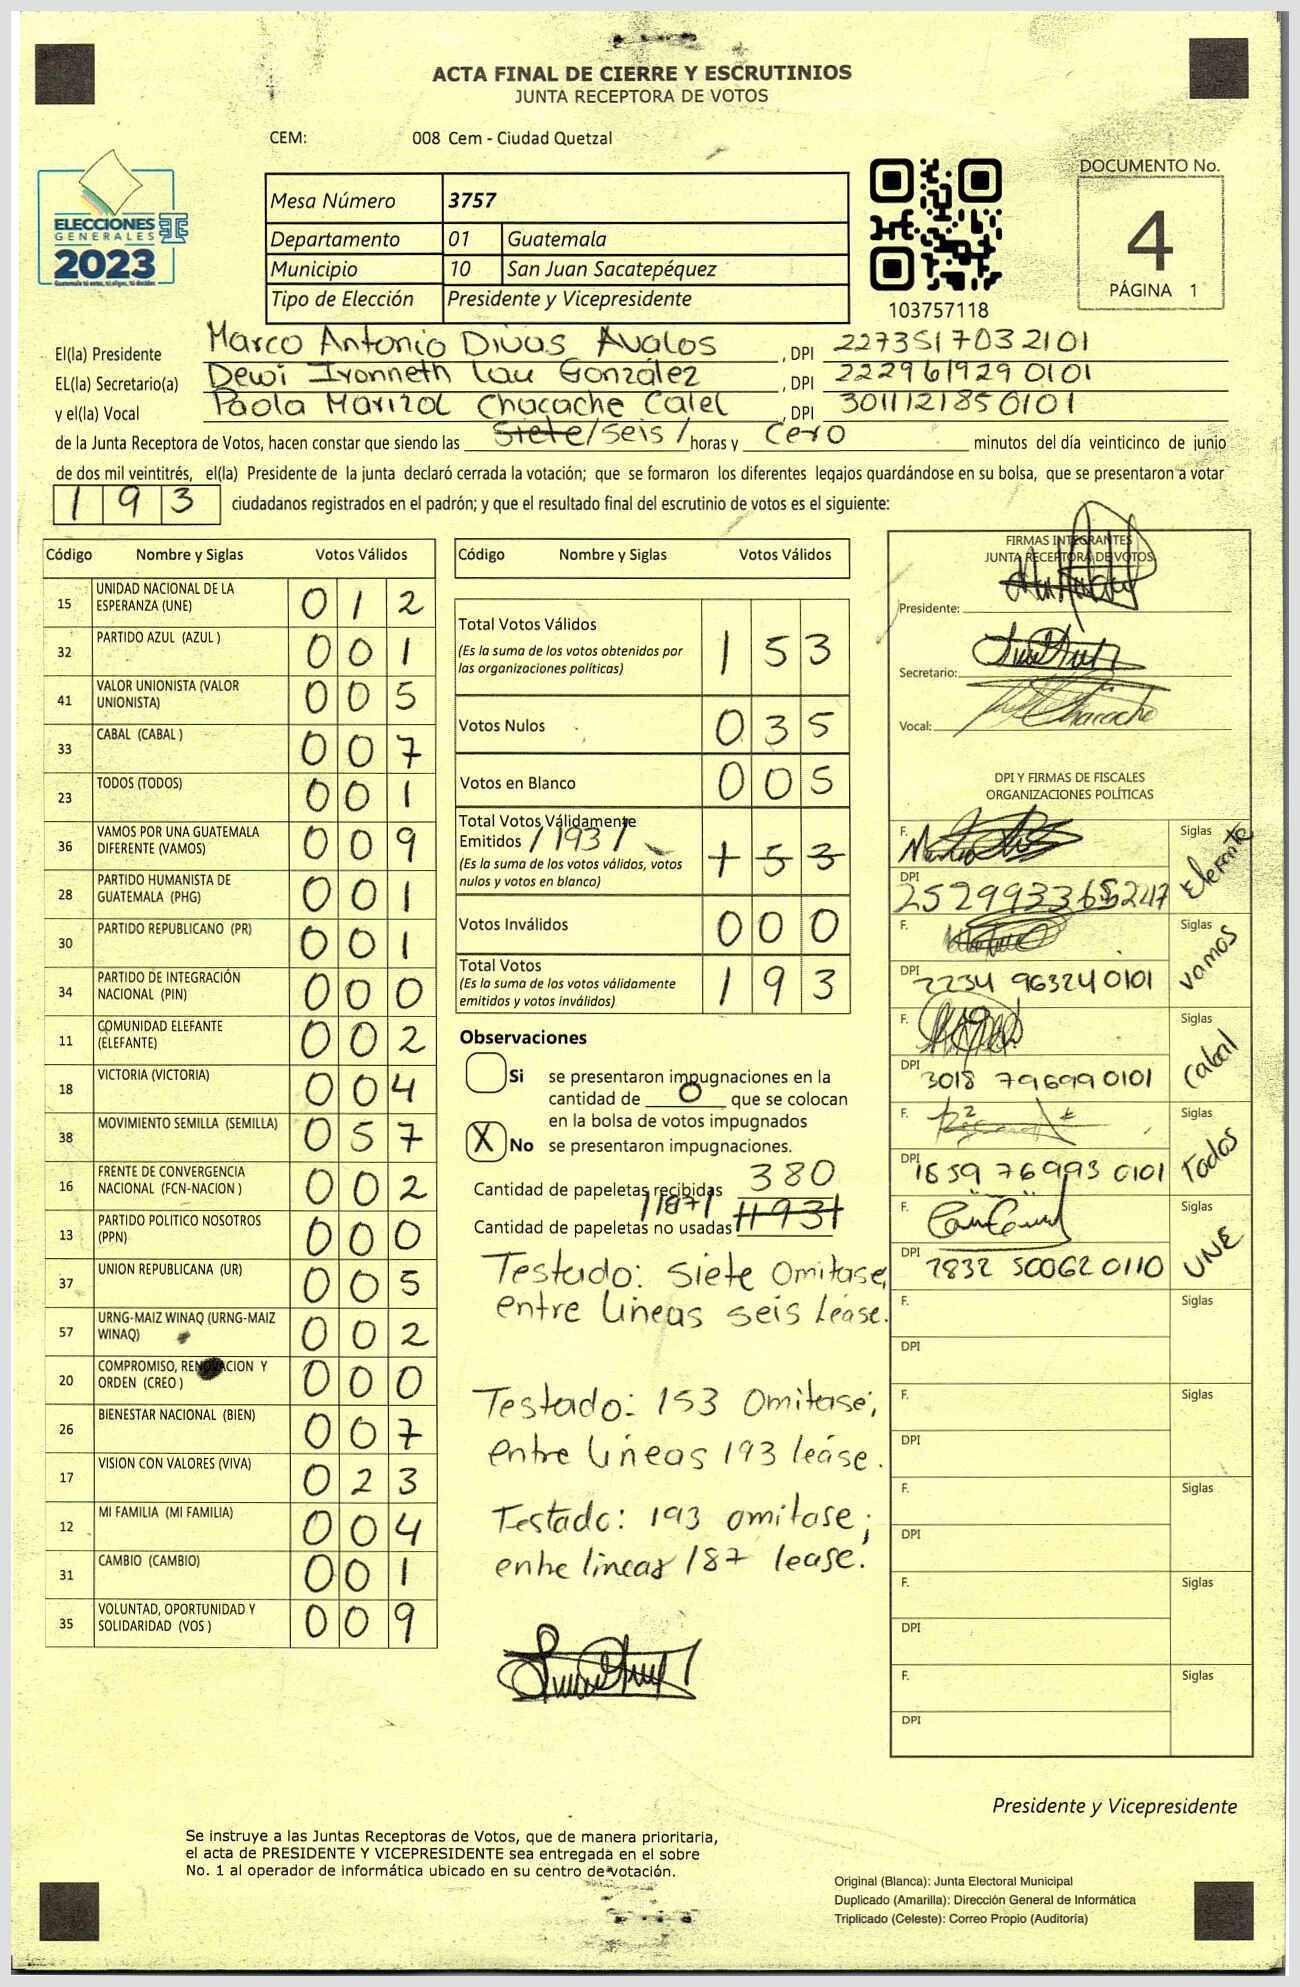 ACTA FINAL DE CIERRE Y ESCRUTINIOS
JUNTA RECEPTORA DE VOTOS
CEM: 008 Cem - Ciudad Quetzal
ELECCIONES
GENERALES
2023
Guatemala tú votas, tú eliges, tú decides
Mesa Número 3757
Departamento 01 Guatemala
Municipio 10 San Juan Sacatepéquez
Tipo de Elección Presidente y Vicepresidente
103757118
DOCUMENTO No.
4
PÁGINA 1
El(la) Presidente Marco Antonio Divas Avalos , DPI 2273517032101
EL(la) Secretario(a) Dewi Ivonneth Lau González , DPI 2229619290101
y el(la) Vocal Paola Marizol Chacache Catel , DPI 3011121850101
de la Junta Receptora de Votos, hacen constar que siendo las Siete/seis/ horas y Cero minutos del día veinticinco de junio
de dos mil veintitrés, el(la) Presidente de la junta declaró cerrada la votación; que se formaron los diferentes legajos quardándose en su bolsa, que se presentaron a votar
193 ciudadanos registrados en el padrón; y que el resultado final del escrutinio de votos es el siguiente:
Código Nombre y Siglas Votos Válidos
15 UNIDAD NACIONAL DE LA ESPERANZA (UNE) 012
32 PARTIDO AZUL (AZUL ) 001
41 VALOR UNIONISTA (VALOR UNIONISTA) 005
33 CABAL (CABAL ) 007
23 TODOS (TODOS) 001
36 VAMOS POR UNA GUATEMALA DIFERENTE (VAMOS) 009
28 PARTIDO HUMANISTA DE GUATEMALA (PHG) 001
30 PARTIDO REPUBLICANO (PR) 001
34 PARTIDO DE INTEGRACIÓN NACIONAL (PIN) 000
11 COMUNIDAD ELEFANTE (ELEFANTE) 002
18 VICTORIA (VICTORIA) 004
38 MOVIMIENTO SEMILLA (SEMILLA) 057
16 FRENTE DE CONVERGENCIA NACIONAL (FCN-NACION ) 002
13 PARTIDO POLITICO NOSOTROS (PPN) 000
37 UNION REPUBLICANA (UR) 005
57 URNG-MAIZ WINAQ (URNG-MAIZ WINAQ) 002
20 COMPROMISO, RENOVACION Y ORDEN (CREO ) 000
26 BIENESTAR NACIONAL (BIEN) 007
17 VISION CON VALORES (VIVA) 023
12 MI FAMILIA (MI FAMILIA) 004
31 CAMBIO (CAMBIO) 001
35 VOLUNTAD, OPORTUNIDAD Y SOLIDARIDAD (VOS ) 009
Código Nombre y Siglas Votos Válidos
Total Votos Válidos 153
(Es la suma de los votos obtenidos por
las organizaciones políticas)
Votos Nulos 035
Votos en Blanco 005
Total Votos Válidamente
Emitidos /193/ 153
(Es la suma de los votos válidos, votos
nulos y votos en blanco)
Votos Inválidos 000
Total Votos 193
(Es la suma de los votos válidamente
emitidos y votos inválidos)
Observaciones
Si se presentaron impugnaciones en la
cantidad de 0 que se colocan
en la bolsa de votos impugnados
X No se presentaron impugnaciones.
Cantidad de papeletas recibidas 380
/187/
Cantidad de papeletas no usadas 193
Testado: Siete Omitase,
entre líneas seis léase.
Testado: 153 Omitase;
entre líneas 193 leáse.
Testado: 193 omitase;
entre lineas 187 lease.
FIRMAS INTEGRANTES
JUNTA RECEPTORA DE VOTOS
Presidente:
Secretario:
Vocal:
DPI Y FIRMAS DE FISCALES
ORGANIZACIONES POLÍTICAS
F. Siglas Elefante
DPI
F. Siglas Vamos
DPI 2234 963240101
F. Siglas Cabal
DPI 3018 796990101
F. Siglas Todos
DPI 1659 76993 0101
F. Siglas UNE
DPI 7832 50062 0110
F. Siglas
DPI
F. Siglas
DPI
F. Siglas
DPI
F. Siglas
DPI
F. Siglas
DPI
Presidente y Vicepresidente
Se instruye a las Juntas Receptoras de Votos, que de manera prioritaria,
el acta de PRESIDENTE Y VICEPRESIDENTE sea entregada en el sobre
No. 1 al operador de informática ubicado en su centro de votación.
Original (Blanca): Junta Electoral Municipal
Duplicado (Amarilla): Dirección General de Informática
Triplicado (Celeste): Correo Propio (Auditoría)